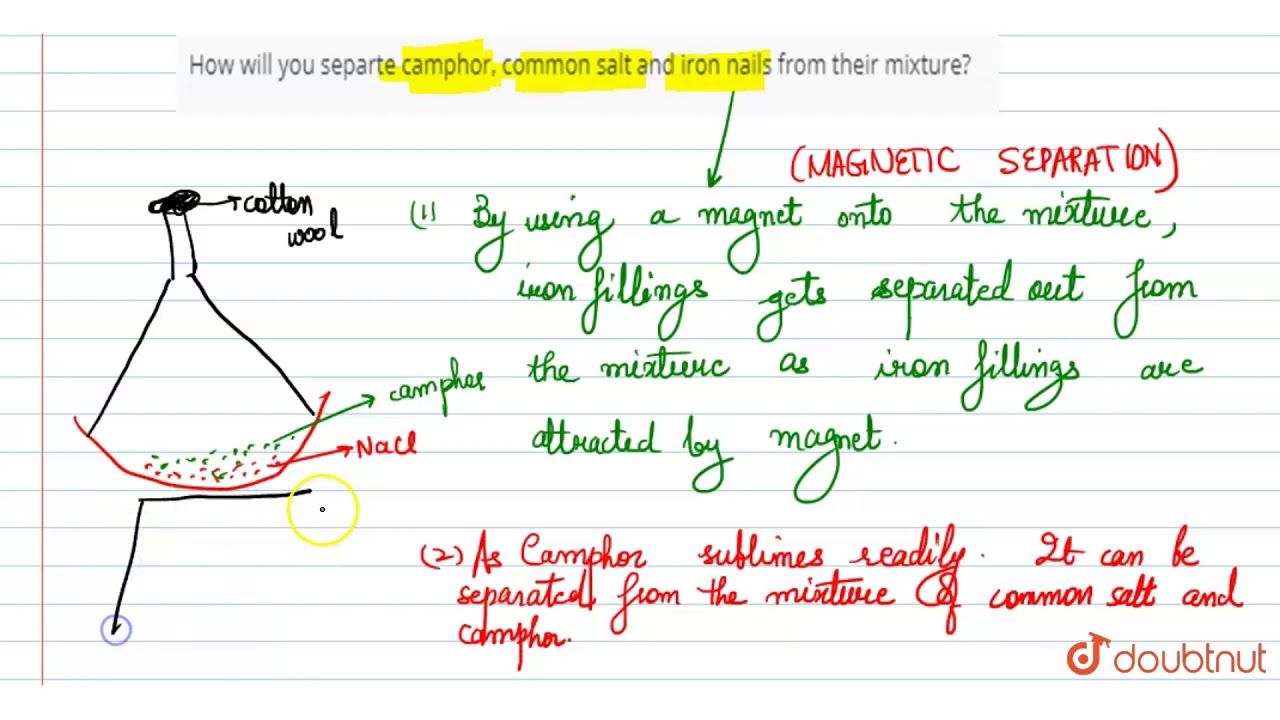 How will you separte camphor, common salt and iron nails from their mixture?
(MAGNETIC SEPARATION)
cotton
wool
(1) By using a magnet onto the mixture,
iron fillings gets separated out from
the mixture as iron fillings are
attracted by magnet.
camphor
NaCl
(2) As Camphor sublimes readily. It can be
separated from the mixture of common salt and
camphor.
doubtnut